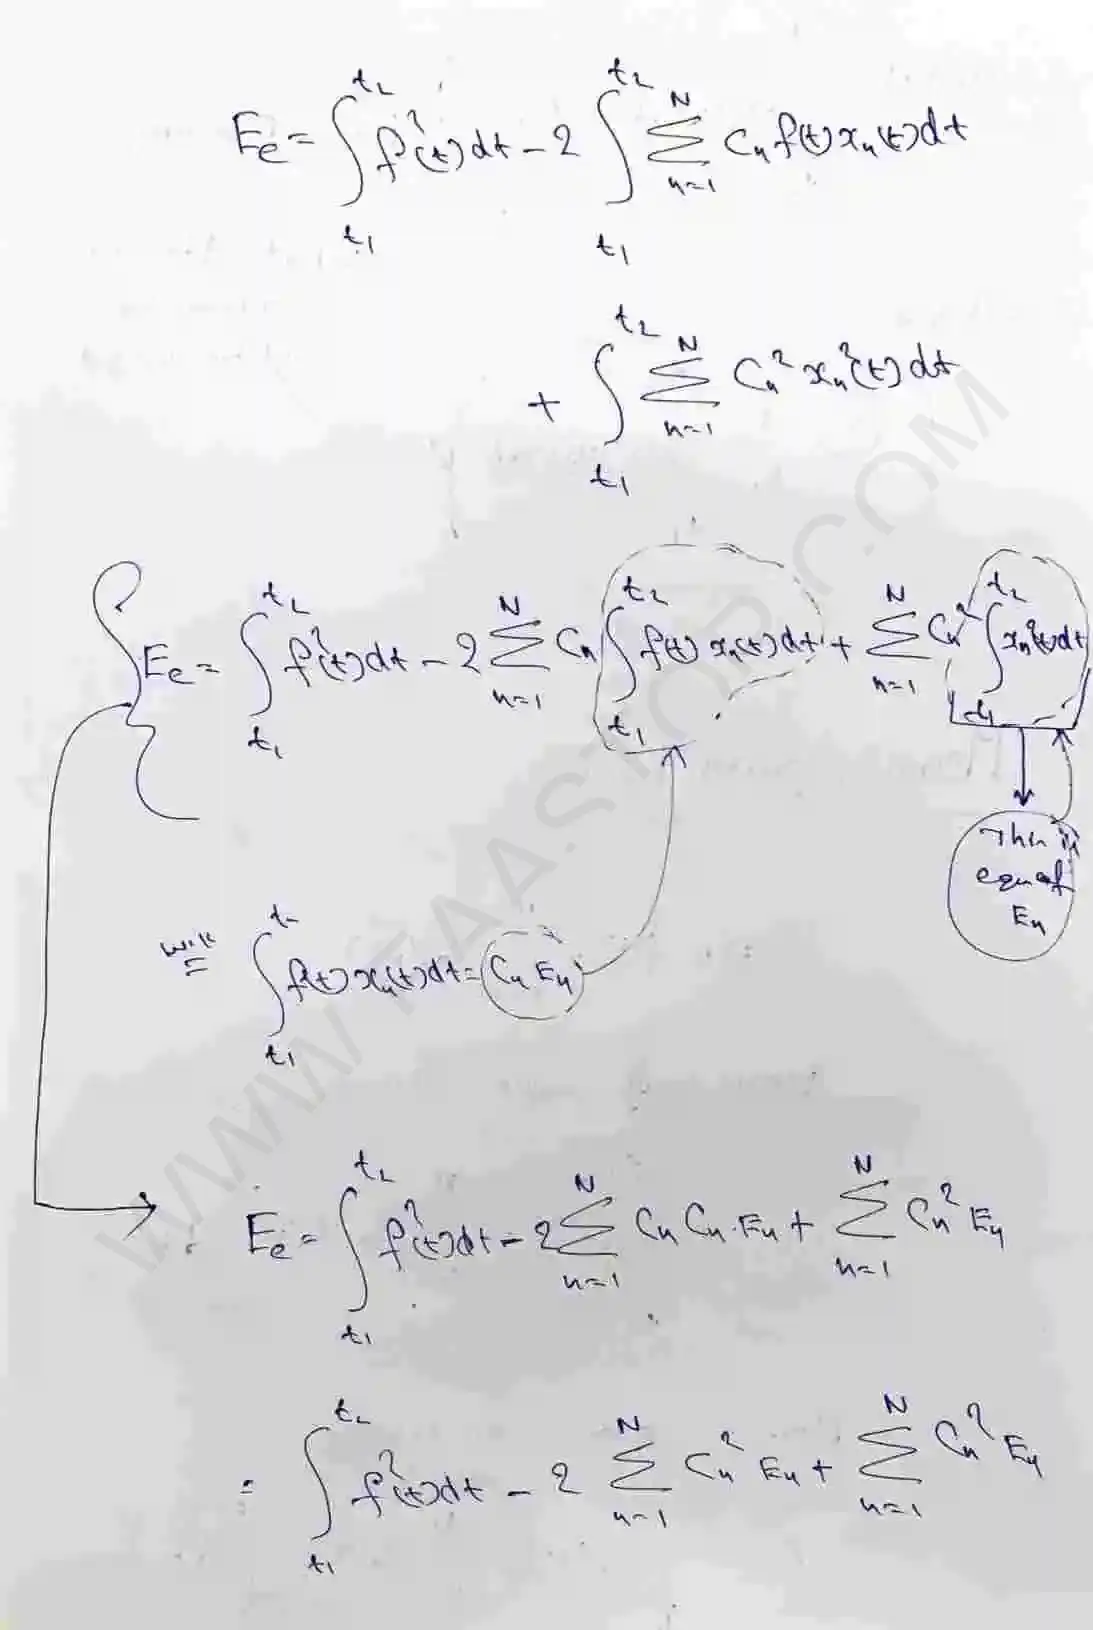 E_e = ∫_{t_1}^{t_2} f²(t)dt - 2 ∫_{t_1}^{t_2} Σ_{n=1}^{N} C_n f(t) x_n(t)dt
+ ∫_{t_1}^{t_2} Σ_{n=1}^{N} C_n² x_n²(t)dt
E_e = ∫_{t_1}^{t_2} f²(t)dt - 2 Σ_{n=1}^{N} C_n ∫_{t_1}^{t_2} f(t) x_n(t)dt + Σ_{n=1}^{N} C_n² ∫_{t_1}^{t_2} x_n²(t)dt
This is
equal
E_n
∫_{t_1}^{t_2} f(t) x_n(t)dt = C_n E_n
E_e = ∫_{t_1}^{t_2} f²(t)dt - 2 Σ_{n=1}^{N} C_n C_n . E_n + Σ_{n=1}^{N} C_n² E_n
= ∫_{t_1}^{t_2} f²(t)dt - 2 Σ_{n=1}^{N} C_n² E_n + Σ_{n=1}^{N} C_n² E_n